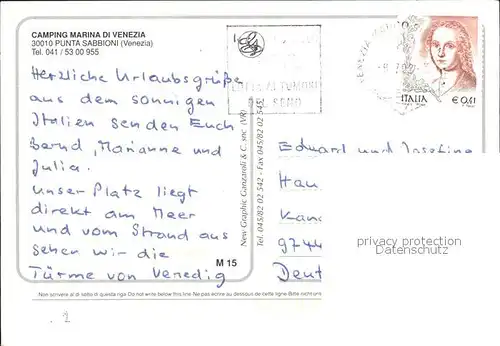 CAMPING MARINA DI VENEZIA
30010 PUNTA SABBIONI (Venezia)
Tel. 041 / 53 00 955
Herzliche Urlaubsgrüße
aus dem sonnigen
Italien senden Euch
Bernd, Marianne und
Julia.
Unser Platz liegt
direkt am Meer
und vom Strand aus
sehen wir die
Türme von Venedig
M 15
Non scrivere al di sotto di questa riga Do not write below this line Ne pas écrire au dessous de cette ligne Bitte nicht unter
New Graphic Ganzaroli & C. snc (VR)
Tel. 045/82 02 542 - Fax 045/82 02 545
LOTTA AI TUMORI
DEL SENO
VENEZIA
ITALIA
€ 0,41
Eduard und Josefine
Hau
Kan
9744
Deut
privacy protection
Datenschutz